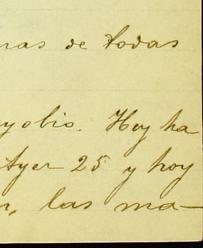 mas de todas
yolis. Hoy ha
Ayer 25 y hoy
las ma-